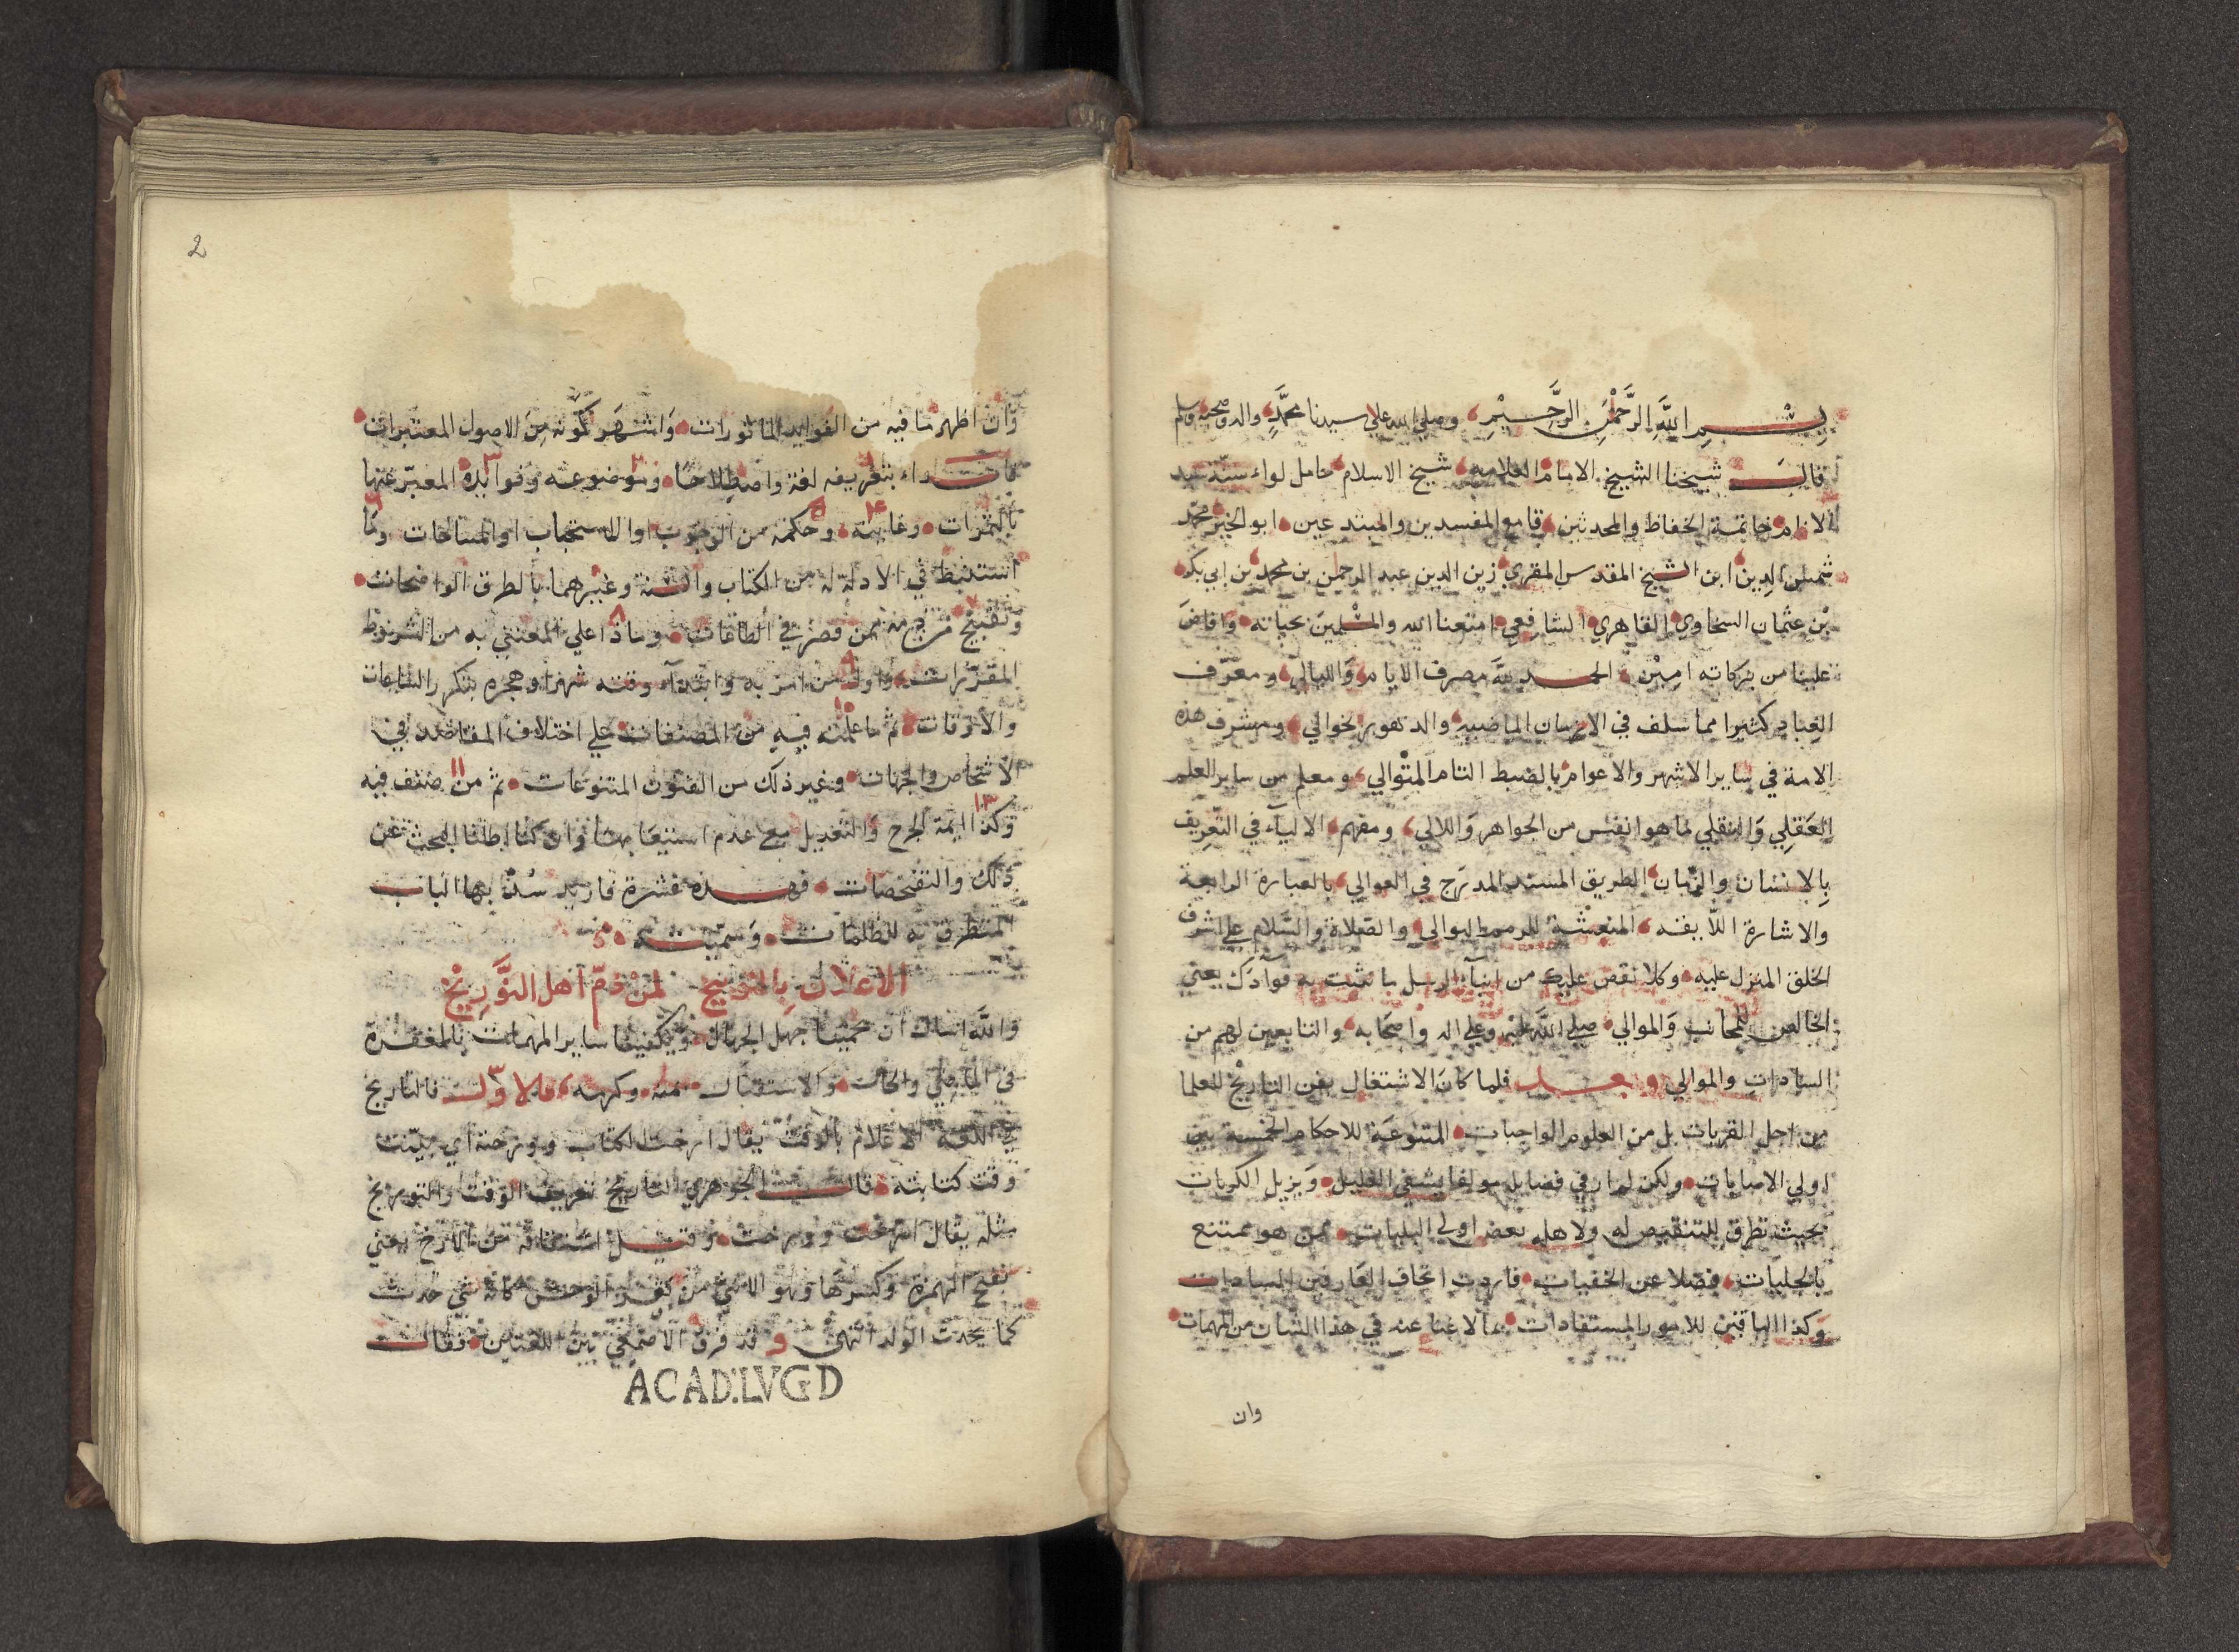 بسم الله الرحمن الرحيم وصلى الله على سيدنا محمد واله وصحبه وسلم
قال شيخنا الشيخ الامام العلامه شيخ الاسلام حامل لواء سنة سيد
الانام خاتمة الحفاظ والمحدثين قامع المفسدين والمبتدعين ابو الخير محمد
شمس الدين ابن الشيخ المقدس المقري زين الدين عبد الرحمن بن محمد بن ابي بكر
بن عثمان السخاوي القاهري الشافعي امتعنا الله والمسلمين بحياته وافاض
علينا من بركاته امين الحمد لله مصرف الايام والليالي ومعرف
العباد كثيرا مما سلف في الازمان الماضيه والدهور الخوالي ومشرف هذه
الامة في ساير الاشهر والاعوام بالضبط التام المتوالي ومعلم من ساير العلم
العقلي والنقلي لما هو انفس من الجواهر واللالي ومفهم الالباء في التعريف
بالانسان والزمان الطريق المسند المدرج في العوالي بالعبارة الرايعة
والاشارة اللايقه المنعشة للرمم البوالي والصلاة والسلام على اشرف
الخلق المنزل عليه وكلا نقص عليك من انباء الرسل ما نثبت به فوادك يعني
الخالص للمحاب والموالي صلى الله عليه وعلى اله واصحابه والتابعين لهم من
السادات والموالي وبعد فلما كان الاشتغال بفن التاريخ للعلما
من اجل القربات بل من العلوم الواجبات المتنوعة للاحكام الخمسة بين
اولي الاصابات ولكن لم ار في فضايله مولفا يشفي الغليل ويزيل الكربات
بحيث تطرق للتنقيص له ولاهله بعض اولي البليات ممن هو ممتنع
بالجليات فضلا عن الخفيات فاردت اتحاف العارفين السادات
وكذا الباقين للامور المستفادات بما لا غنا عنه في هذا الشان من المهمات
وان
2
وان اظهر ما فيه من الفوايد الماثورات واشهر كونه من الاصول المعتبرات
بتعريفه لغة واصطلاحا وموضوعه وفوايده المعبر عنها
بالثمرات وغايته وحكمه من الوجوب او الاستحباب او المباحات وما
استنبط في الادلة له من الكتاب والسنة وغيرهما بالطرق الواضحات
وتقبيح من ذمه ممن قصر في الطاعات وماذا على المعتني به من الشروط
المقررات واول من امر به وابتداء وقته شهرا وهجره بتكرر الساعات
والاوقات ثم ما علمته فيه من المصنفات على اختلاف المقاصد في
الاشخاص والجهات وغير ذلك من الفنون المتنوعات ثم من صنف فيه
وكذا ايمة الجرح والتعديل مع عدم استيعابهما وان كنا اطلنا البحث عن
ذلك والتفحصات فهذه عشرة فازيد سد بها الباب
المتطرق به للظلمات وسميته
الاعلان بالتوبيخ لمن ذم اهل التوريخ
والله اسال ان يحمينا جهل الجهال ويكفينا ساير المهمات بالمغفرة
في الماضي والحال والاستقبال بمنه وكرمه فالاول فالتاريخ
في اللغة الاعلام بالوقت يقال ارخت الكتاب وورخته اي بينت
وقت كتابته قال الجوهري التاريخ تعريف الوقت والتوريخ
مثله يقال ارخت وورخت وقيل اشتقاقه من الارخ يعني
بفتح الهمزة وكسرها وهو الانثى من بقر الوحش كانه شي حدث
كما يحدث الولد انتهى وقد فرق الاصمعي بين اللغتين فقال
ACAD.LVGD